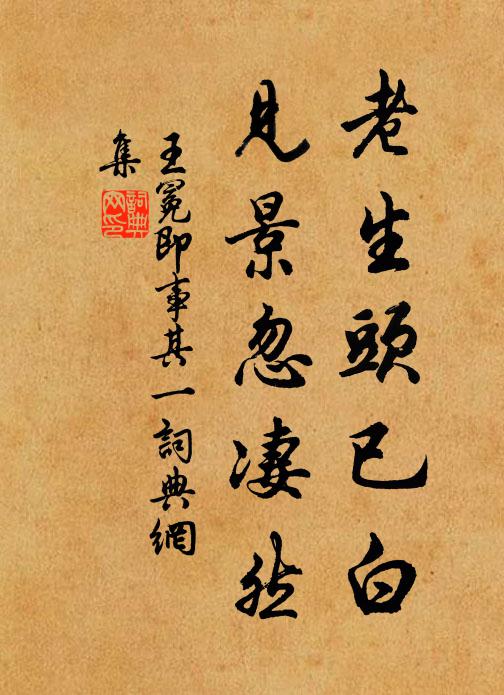 老生頭已白
見景忽凄然
王冕即事其一詞典網
集
詞典
网印